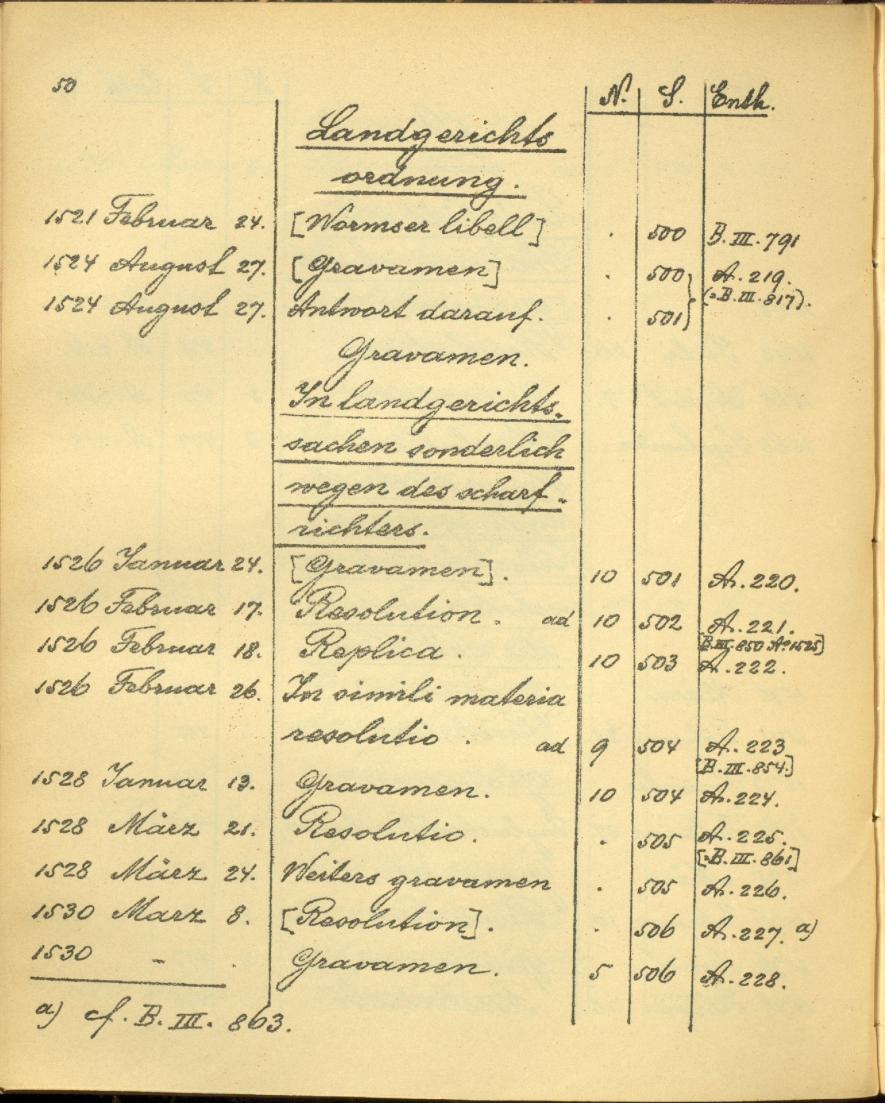 50
N. S. Enth.
Landgerichts
ordnung.
1521 Februar 24. [Wormser libell] . 500 B.III.791
1524 August 27. [Gravamen] . 500 A.219.
(=B.III.817).
1524 August 27. Antwort darauf. . 501
Gravamen.
In landgerichts-
sachen sonderlich
wegen des scharf-
richters.
1526 Januar 24. [Gravamen]. 10 501 A.220.
1526 Februar 17. Resolution. ad 10 502 A.221.
[B.III.850 Aº1525]
1526 Februar 18. Replica. 10 503 A.222.
1526 Februar 26. In simili materia
resolutio. ad 9 504 A.223
[B.III.854.]
1528 Januar 13. Gravamen. 10 504 A.224.
1528 März 21. Resolutio. . 505 A.225.
[=B.III.861]
1528 März 24. Weiters gravamen . 505 A.226.
1530 März 8. [Resolution]. . 506 A.227. a)
1530 - . Gravamen. 5 506 A.228.
a) cf. B.III.863.